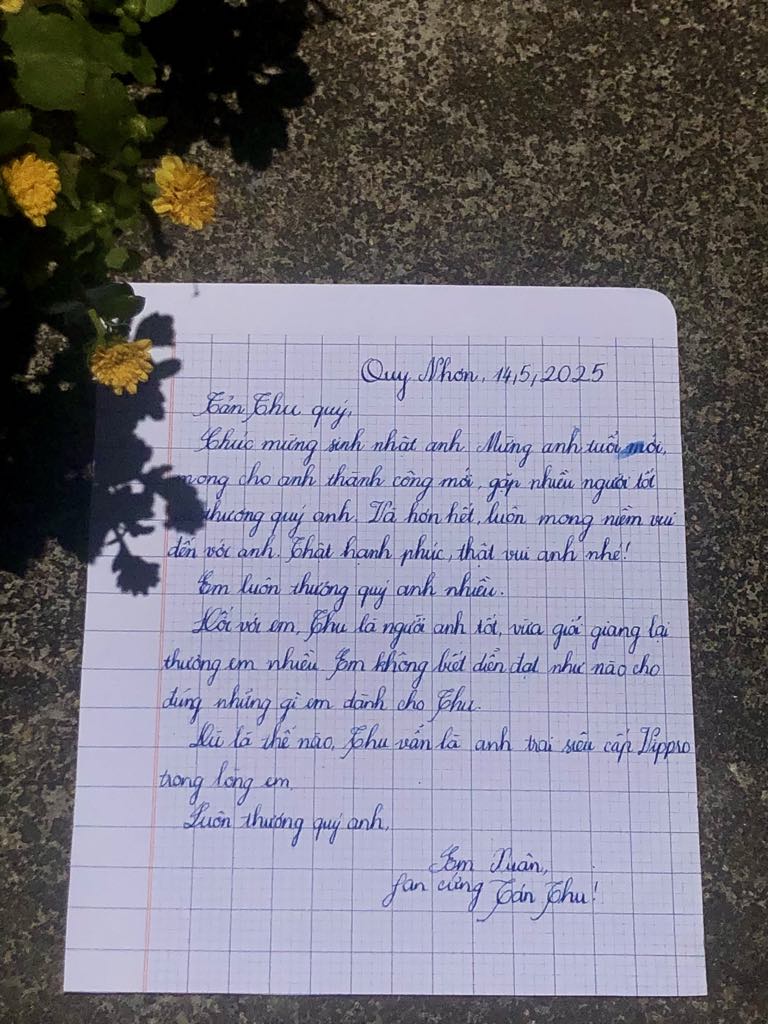 Quy Nhơn, 14,5,2025
Tản Thu quý,
Chúc mừng sinh nhật anh. Mừng anh tuổi mới,
mong cho anh thành công mới, gặp nhiều người tốt
thương quý anh. Và hơn hết, luôn mong niềm vui
đến với anh. Thật hạnh phúc, thật vui anh nhé!
Em luôn thương quý anh nhiều.
Đối với em, Thu là người anh tốt, vừa giỏi giang lại
thương em nhiều. Em không biết diễn đạt như nào cho
đúng những gì em dành cho Thu.
Dù là thế nào, Thu vẫn là anh trai siêu cấp Vippro
trong lòng em.
Luôn thương quý anh,
Em Xuân,
fan cứng Tản Thu!